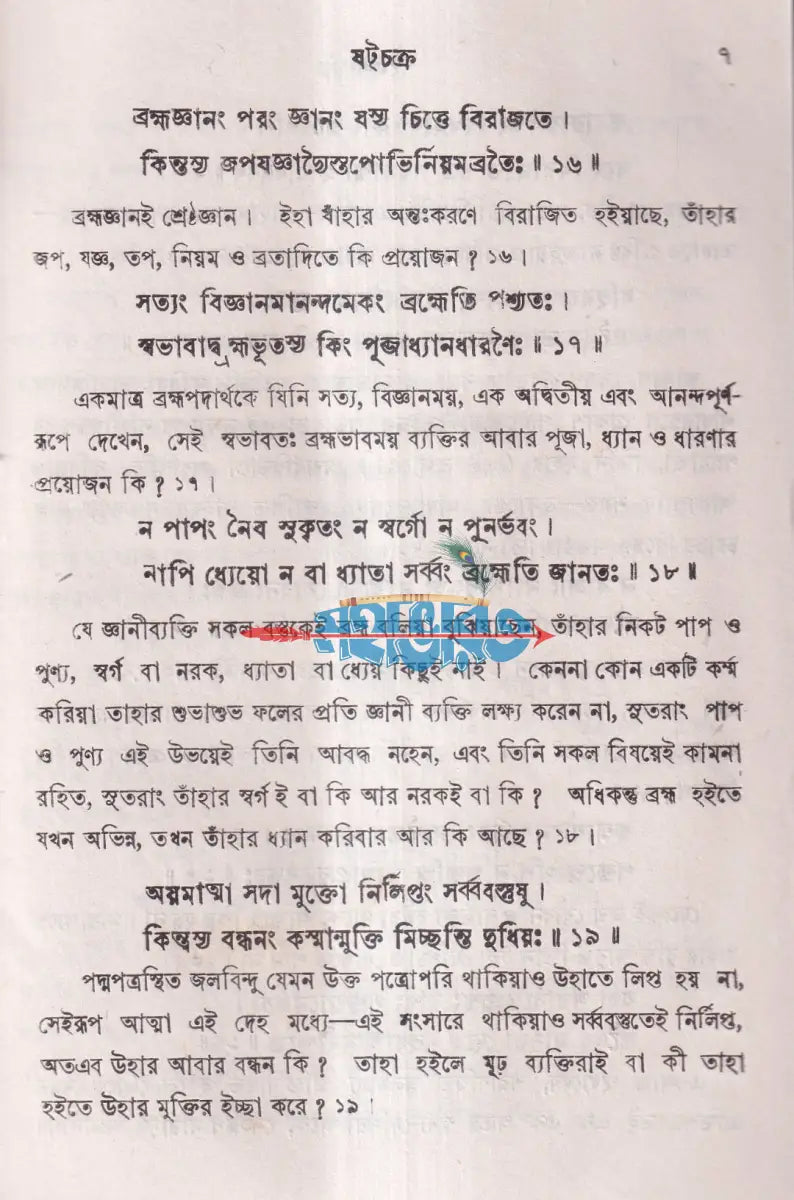 ষট্‌চক্র ৭
ব্রহ্মজ্ঞানং পরং জ্ঞানং যস্য চিত্তে বিরাজতে ।
কিন্তস্য জপযজ্ঞাদ্যৈস্তপোভির্নিয়মব্রতৈঃ ॥ ১৬ ॥
ব্রহ্মজ্ঞানই শ্রেষ্ঠজ্ঞান । ইহা যাঁহার অন্তঃকরণে বিরাজিত হইয়াছে, তাঁহার
জপ, যজ্ঞ, তপ, নিয়ম ও ব্রতাদিতে কি প্রয়োজন ? ১৬ ।
সত্যং বিজ্ঞানমানন্দমেকং ব্রহ্মেতি পশ্যতঃ ।
স্বভাবাদ্ব্রহ্মভূতস্য কিং পূজাধ্যানধারণৈঃ ॥ ১৭ ॥
একমাত্র ব্রহ্মপদার্থকে যিনি সত্য, বিজ্ঞানময়, এক অদ্বিতীয় এবং আনন্দপূর্ণ-
রূপে দেখেন, সেই স্বভাবতঃ ব্রহ্মভাবময় ব্যক্তির আবার পূজা, ধ্যান ও ধারণার
প্রয়োজন কি ? ১৭ ।
ন পাপং নৈব সুকৃতং ন স্বর্গো ন পুনর্ভবং ।
নাপি ধ্যেয়ো ন বা ধ্যাতা সর্ব্বং ব্রহ্মেতি জানতঃ ॥ ১৮ ॥
মহাভারত
যে জ্ঞানীব্যক্তি সকল বস্তুকেই ব্রহ্ম বলিয়া বুঝিয়াছেন, তাঁহার নিকট পাপ ও
পুণ্য, স্বর্গ বা নরক, ধ্যাতা বা ধ্যেয় কিছুই নাই । কেননা কোন একটি কর্ম্ম
করিয়া তাহার শুভাশুভ ফলের প্রতি জ্ঞানী ব্যক্তি লক্ষ্য করেন না, সুতরাং পাপ
ও পুণ্য এই উভয়েই তিনি আবদ্ধ নহেন, এবং তিনি সকল বিষয়েই কামনা
রহিত, সুতরাং তাঁহার স্বর্গ ই বা কি আর নরকই বা কি ? অধিকন্তু ব্রহ্ম হইতে
যখন অভিন্ন, তখন তাঁহার ধ্যান করিবার আর কি আছে ? ১৮ ।
অয়মাত্মা সদা মুক্তো নির্লিপ্তং সর্ব্ববস্তুষু ।
কিন্তস্য বন্ধনং কস্মান্মুক্তি মিচ্ছন্তি দুধিয়ঃ ॥ ১৯ ॥
পদ্মপত্রস্থিত জলবিন্দু যেমন উক্ত পত্রোপরি থাকিয়াও উহাতে লিপ্ত হয় না,
সেইরূপ আত্মা এই দেহ মধ্যে—এই সংসারে থাকিয়াও সর্ব্ববস্তুতেই নির্লিপ্ত,
অতএব উহার আবার বন্ধন কি ? তাহা হইলে মূঢ় ব্যক্তিরাই বা কী তাহা
হইতে উহার মুক্তির ইচ্ছা করে ? ১৯ ।